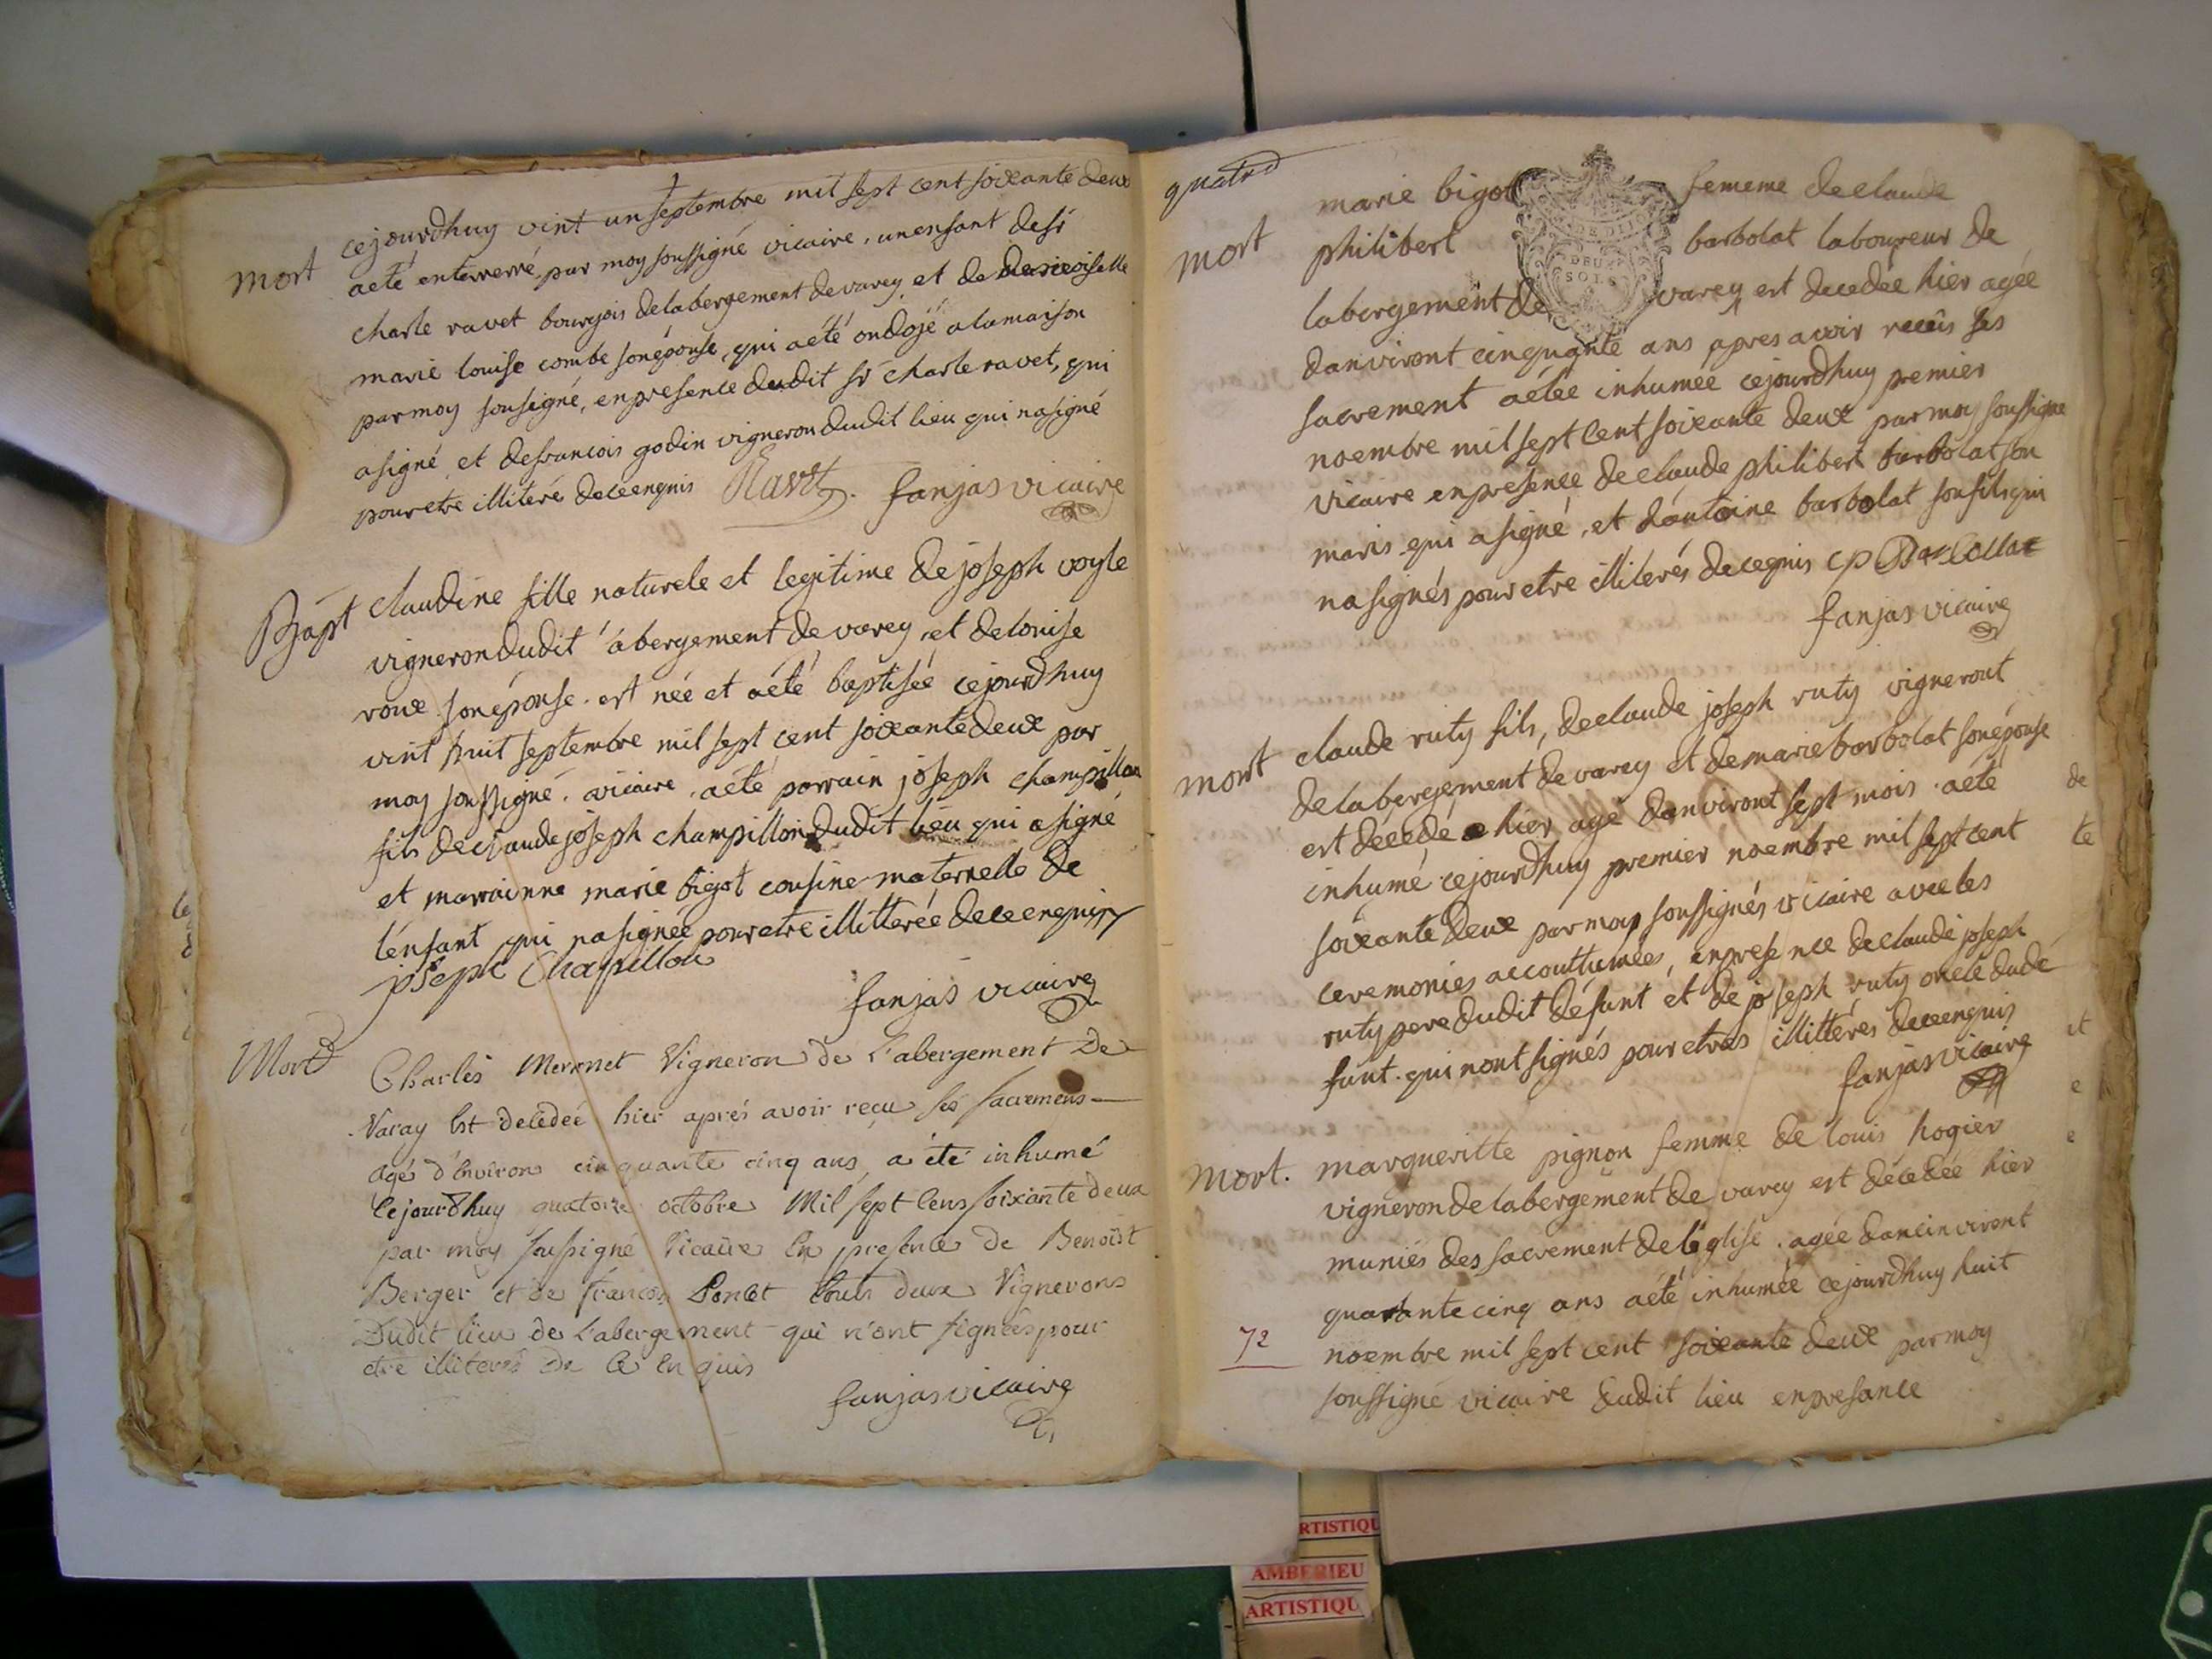 mort
cejourdhuy vint un septembre mil sept cent soixante deux
aeté enterrerré par moy soussigné vicaire, unenfant desr
charle ravet bourgois delabergement devarey et de demeoiselle
marie louise combe sonépouse, qui aété ondojé alamaison
parmoy sousigné, enpresence dudit sr charle ravet, qui
asigné et defrancois godin vigneron dudit lieu qui nasigné
pouretre illiteré deceenquis Ravet fanjas vicaire
Bapt
claudine fille naturele et legitime de joseph voyle
vignerondudit abergement de varey, et delouise
roux sonépouse. est née et aété baptisée cejourdhuy
vint huit septembre mil sept cent soixante deux par
moy soussigné. vicaire. aété parrain joseph champillon
fils declaudejoseph champillon dudit lieu qui asigné
et marrainne marie bigot cousine maternelle de
lénfant qui nasignée pouretre illitterée deceenquis
joseph Chapillon
fanjas vicaire
Mort
Charles Mermet Vigneron de L'abergement De
Varay Est decedeé hier aprés avoir reçu ses sacremens
agé d'environ cinquante cinq ans, a été inhumé
Cejourdhuy quatorze octobre Mil sept cens soixante deux
par moy soussigné Vicaire En presence de Benoist
Berger et de francois Poncet touts deux Vignerons
Dudit lieu de L'abergement qui n'ont signéés pour
etre illiterés De Ce Enquis
fanjas vicaire
quatre
mort
marie bigot fememe declaude
philibert barbolat laboureur de
labergement de varey est decedée hier agée
danviront cinquante ans apres avoir recêus ses
sacrement aétée inhumée cejourdhuy premier
noembre mil sept cent soixante deux par moy soussigne
vicaire enpresence declaude philibert barbolat son
maris qui asigné, et dantoine barbolat sonfils qui
nasignés pour etre illiterés decequis cp Barbollat
fanjas vicaire
DEUX
SOLS
mort
claude ruty fils, declaude joseph ruty vigneront
delabergement devarey et demarie barbolat sonépouse
est decedé hier agé danviront sept mois. aété
inhumé cejourdhuy premier noembre mil sept cent
soixante deux par moy soussignés vicaire avec les
ceremonies accouttumées, enpresence declaude joseph
ruty pere dudit defunt et de joseph ruty oncle dude
funt. qui nont signés pour etres illittéres deceenquis
fanjas vicaire
mort.
marqueritte pignon femme de louis hogier
vigneron delabergement de varey est décedée hier
muniés des sacrement deléglise. agée dancinviront
quarante cinq ans aété inhumée cejourdhuy huit
72
noembre mil sept cent soixante deux par moy
soussigné vicaire dudit lieu enpresance
de
te
et
e
e
RTISTIQU
AMBERIEU
ARTISTIQU